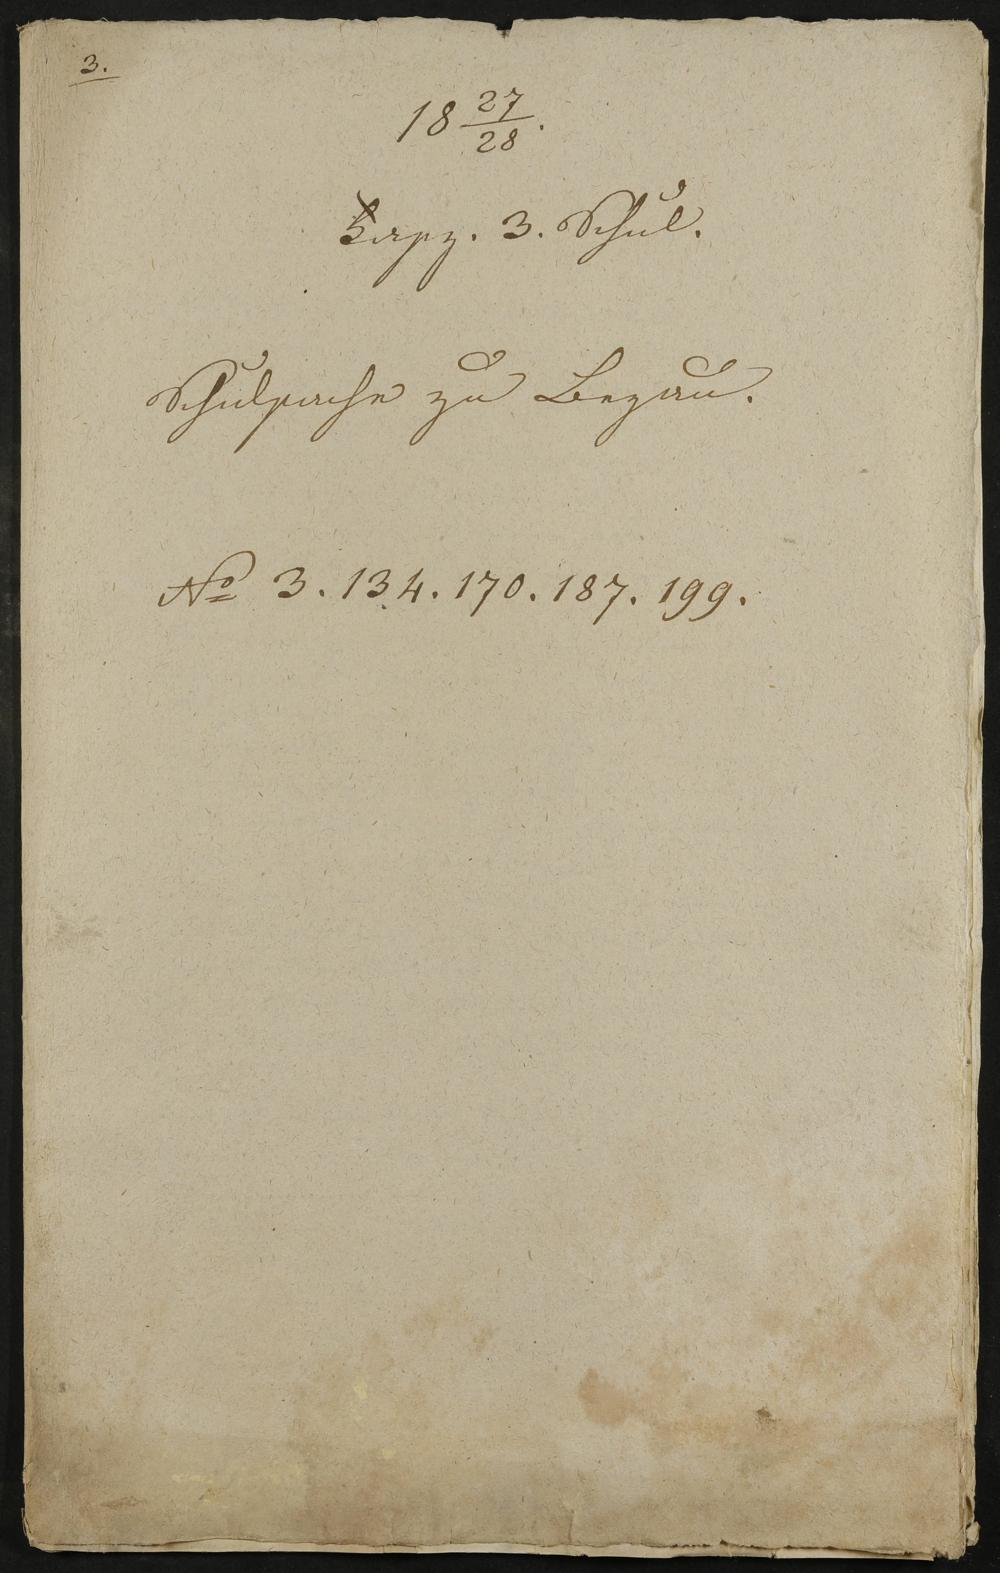 3.
18 27/28.
Fasz. 3. Schul.
Schulsache zu Bezau.
No 3. 134. 170. 187. 199.